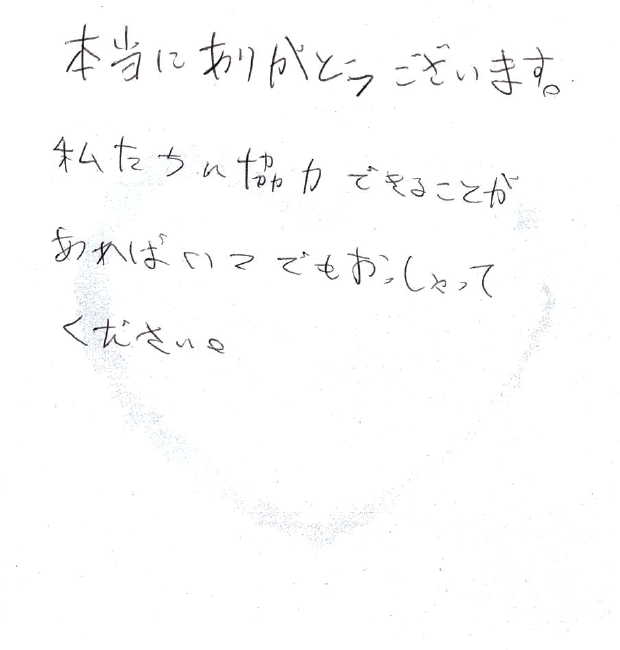 本当にありがとうございます。
私たちに協力できることが
あればいつでもおっしゃって
ください。